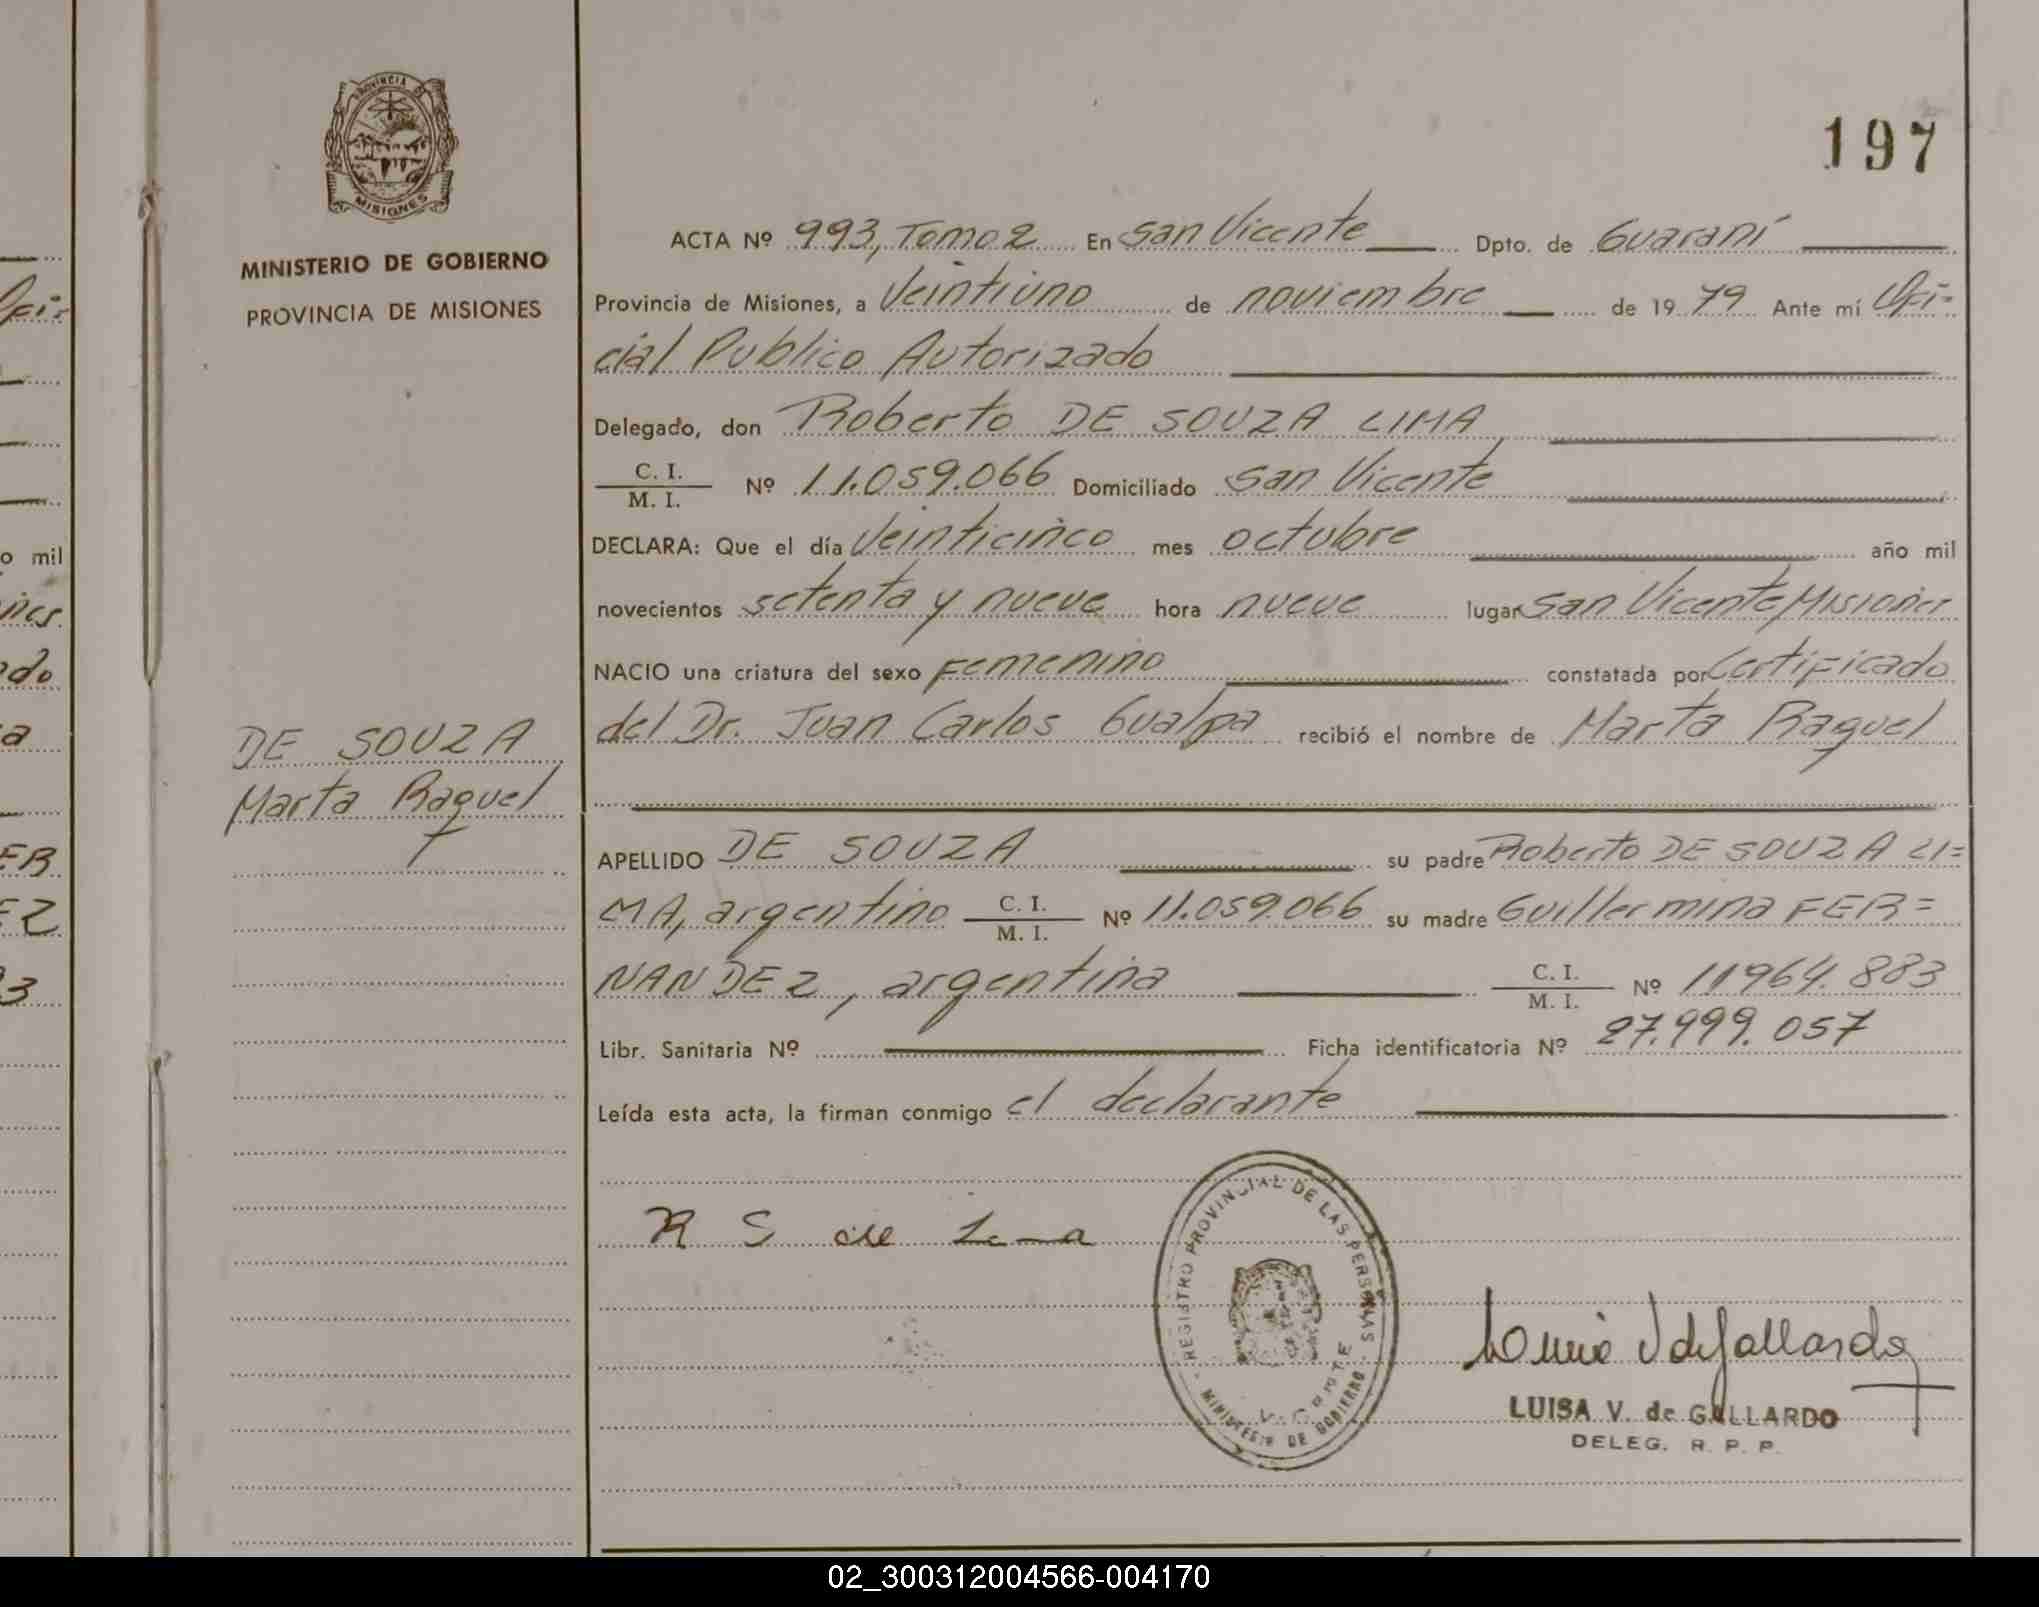 197
PROVINCIA
MISIONES
MINISTERIO DE GOBIERNO
PROVINCIA DE MISIONES
ACTA Nº 993, Tomo 2 En San Vicente Dpto. de Guaraní
Provincia de Misiones, a Veintiuno de noviembre de 19 79 Ante mí Ofi=
cial Publico Autorizado
Delegado, don Roberto DE SOUZA LIMA,
C. I. / M. I. Nº 11.059.066 Domiciliado San Vicente
DECLARA: Que el día Veinticinco mes octubre año mil
novecientos setenta y nueve hora nueve lugar San Vicente, Misiones
NACIO una criatura del sexo Femenino constatada por Certificado
del Dr. Juan Carlos Gualpa recibió el nombre de Marta Raquel
DE SOUZA
Marta Raquel
F
APELLIDO DE SOUZA su padre Roberto DE SOUZA LI=
MA, argentino C. I. / M. I. Nº 11.059.066 su madre Guillermina FER=
NANDEZ, argentina C. I. / M. I. Nº 11964.883
Libr. Sanitaria Nº Ficha identificatoria Nº 27.999.057
Leída esta acta, la firman conmigo el declarante
R S de
REGISTRO PROVINCIAL DE LAS PERSONAS
MINISTERIO DE GOBIERNO
V. de Gallardo
LUISA V. de GALLARDO
DELEG. R. P. P.
o mil
02_300312004566-004170